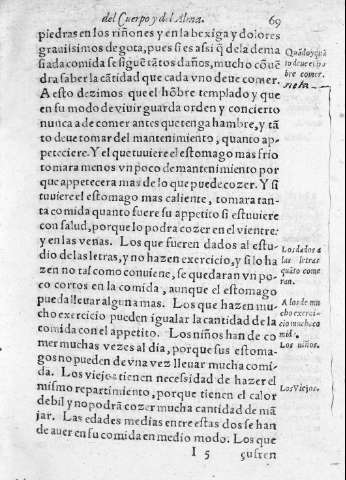 del Cuerpo y del Alma. 69
piedras en los riñones y en la bexiga y dolores
grauissimos de gota, pues si es assi q̃ de la dema
siada comida se siguẽ tãtos daños, mucho cõuẽ
dra saber la cãtidad que cada vno deue comer.
A esto dezimos que el hõbre templado y que
en su modo de viuir guarda orden y concierto
nunca a de comer antes que tenga hambre, y tã
to deue tomar del mantenimiento, quanto ap-
peteciere. Y el que tuuiere el estomago mas frio
tomara menos vn poco de mantenimiento por
que appetecera mas de lo que puede cozer. Y si
tuuiere el estomago mas caliente, tomara tan-
ta comida quanto fuere su appetito si estuuiere
con salud, porque lo podra cozer en el vientre
y en las venas. Los que fueren dados al estu-
dio de las letras, y no hazen exercicio, y si lo ha
zen no tal como conuiene, se quedaran vn po-
co cortos en la comida, aunque el estomago
pueda lleuar alguna mas. Los que hazen mu-
cho exercicio pueden igualar la cantidad de la
comida con el appetito. Los niños han de co-
mer muchas vezes al dia, porque sus estoma-
gos no pueden de vna vez lleuar mucha comi-
da. Los viejos tienen necessidad de hazer el
mismo repartimiento, porque tienen el calor
debil y no podrã cozer mucha cantidad de mã
jar. Las edades medias entre estas dos se han
de auer en su comida en medio modo. Los que
I 5 sufren
Quãdo y quã
to deue el hõ
bre comer.
nota
Los dados a
las letras
quãto come
ran.
A los de mu
cho exerci-
cio mucha co
mida.
Los niños.
Los Viejos.